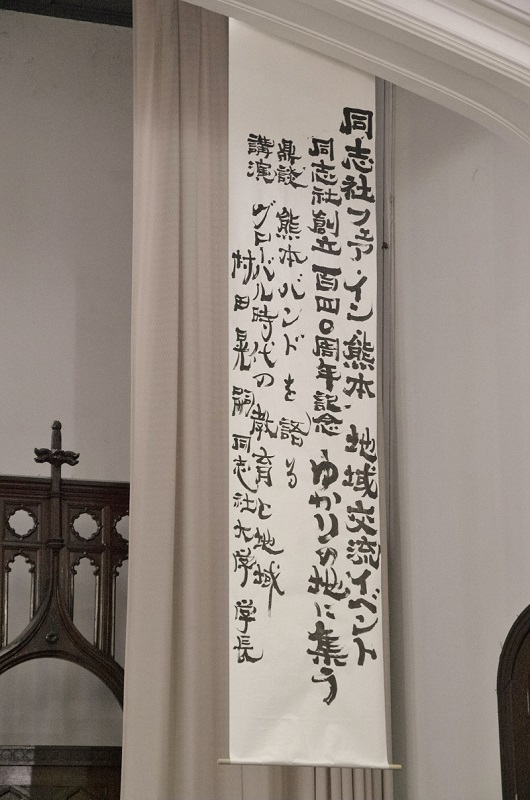 同志社フェア・イン・熊本 地域交流イベント
同志社創立百四〇周年記念 ゆかりの地に集う
鼎談 熊本バンドを語る
講演 グローバル時代の教育と地域
村田晃嗣 同志社大学 学長